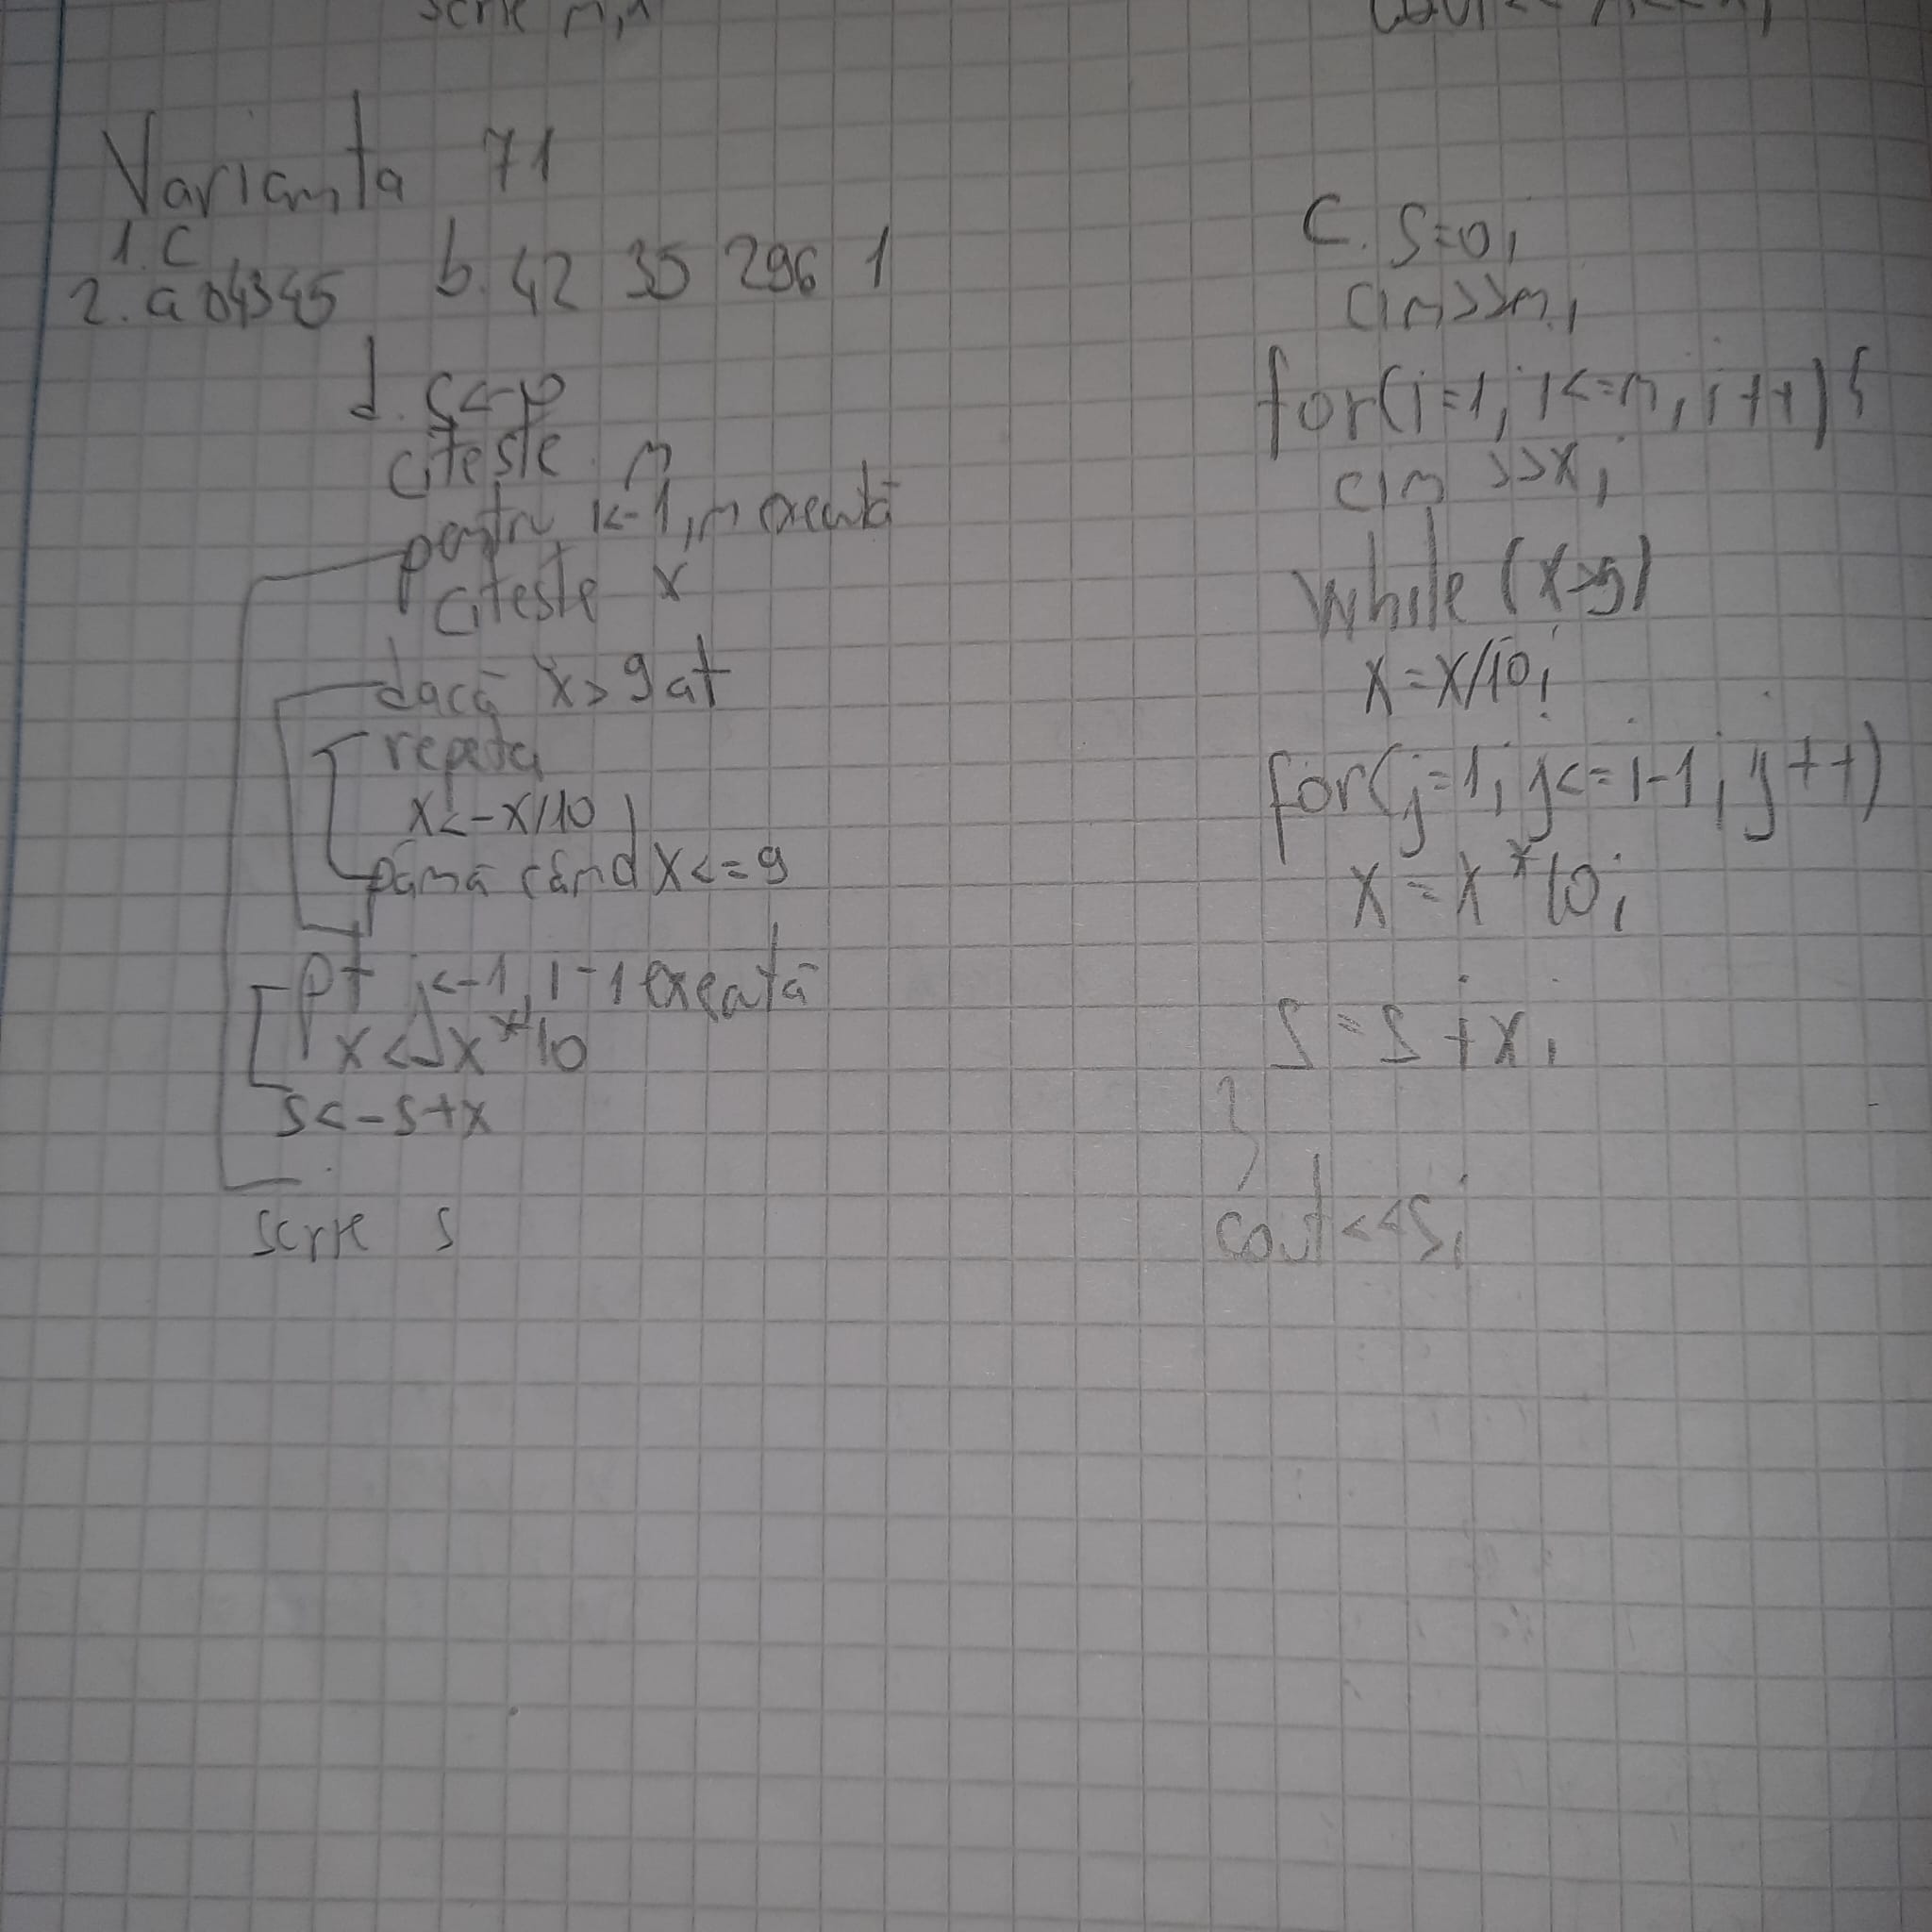 scrie n, 
Varianta 71
1. C
2. a 04345 b. 42 35 296 1
d. s<-0
citeste n
pentru i<-1, n execută
citeste x
dacă x>9 at
repeta
x<-x/10
până când x<=9
pt j<-1, i-1 execută
x<-x*10
s<-s+x
scrie s
C. s=0;
cin>>n;
for(i=1; i<=n; i++){
cin >>x;
while (x>9)
x=x/10;
for(j=1; j<=i-1; j++)
x=x*10;
s=s+x;
}
cout<<s;